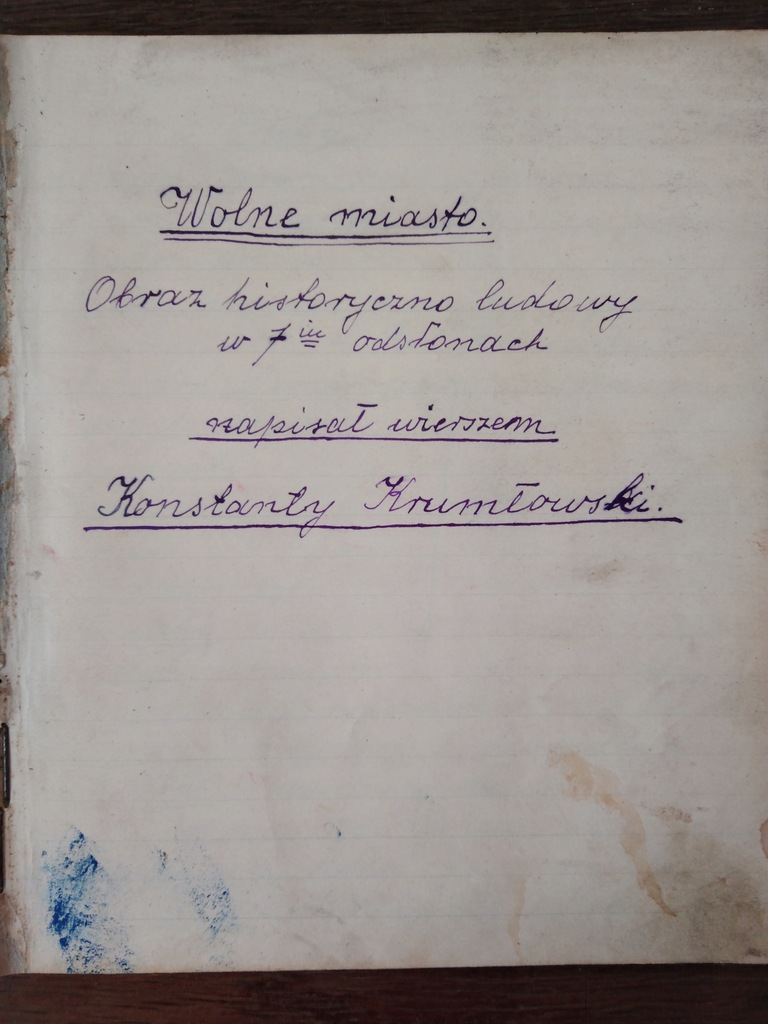 Wolne miasto.
Obraz historyczno ludowy
w 7iu odsłonach
napisał wierszem
Konstanty Krumłowski.